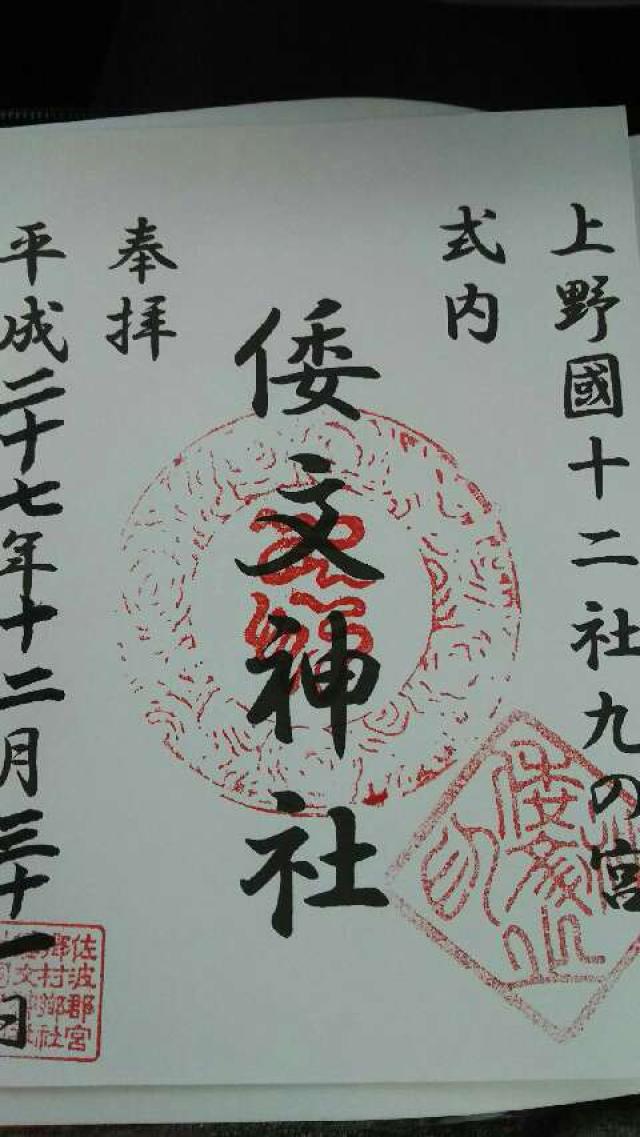 上野國十二社九の宮
式内
倭文神社
奉拝
平成二十七年十二月三十一日
佐波郡宮
郷村郷社